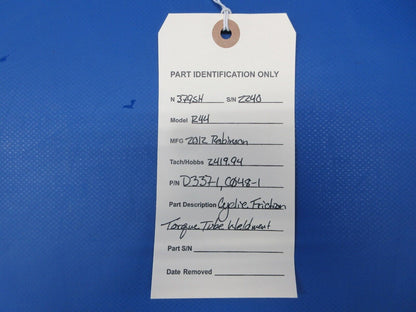 PART IDENTIFICATION ONLY
N 379SH S/N 2240
Model R44
MFG 2012 Robinson
Tach/Hobbs 2419.94
P/N D337-1, C048-1
Part Description Cyclic Friction
Torque Tube Weldment
Part S/N
Date Removed